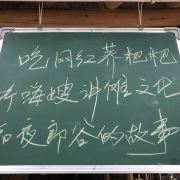 吃网红荞粑粑
听嗨嫂冲傩文化
和夜郎谷的故事